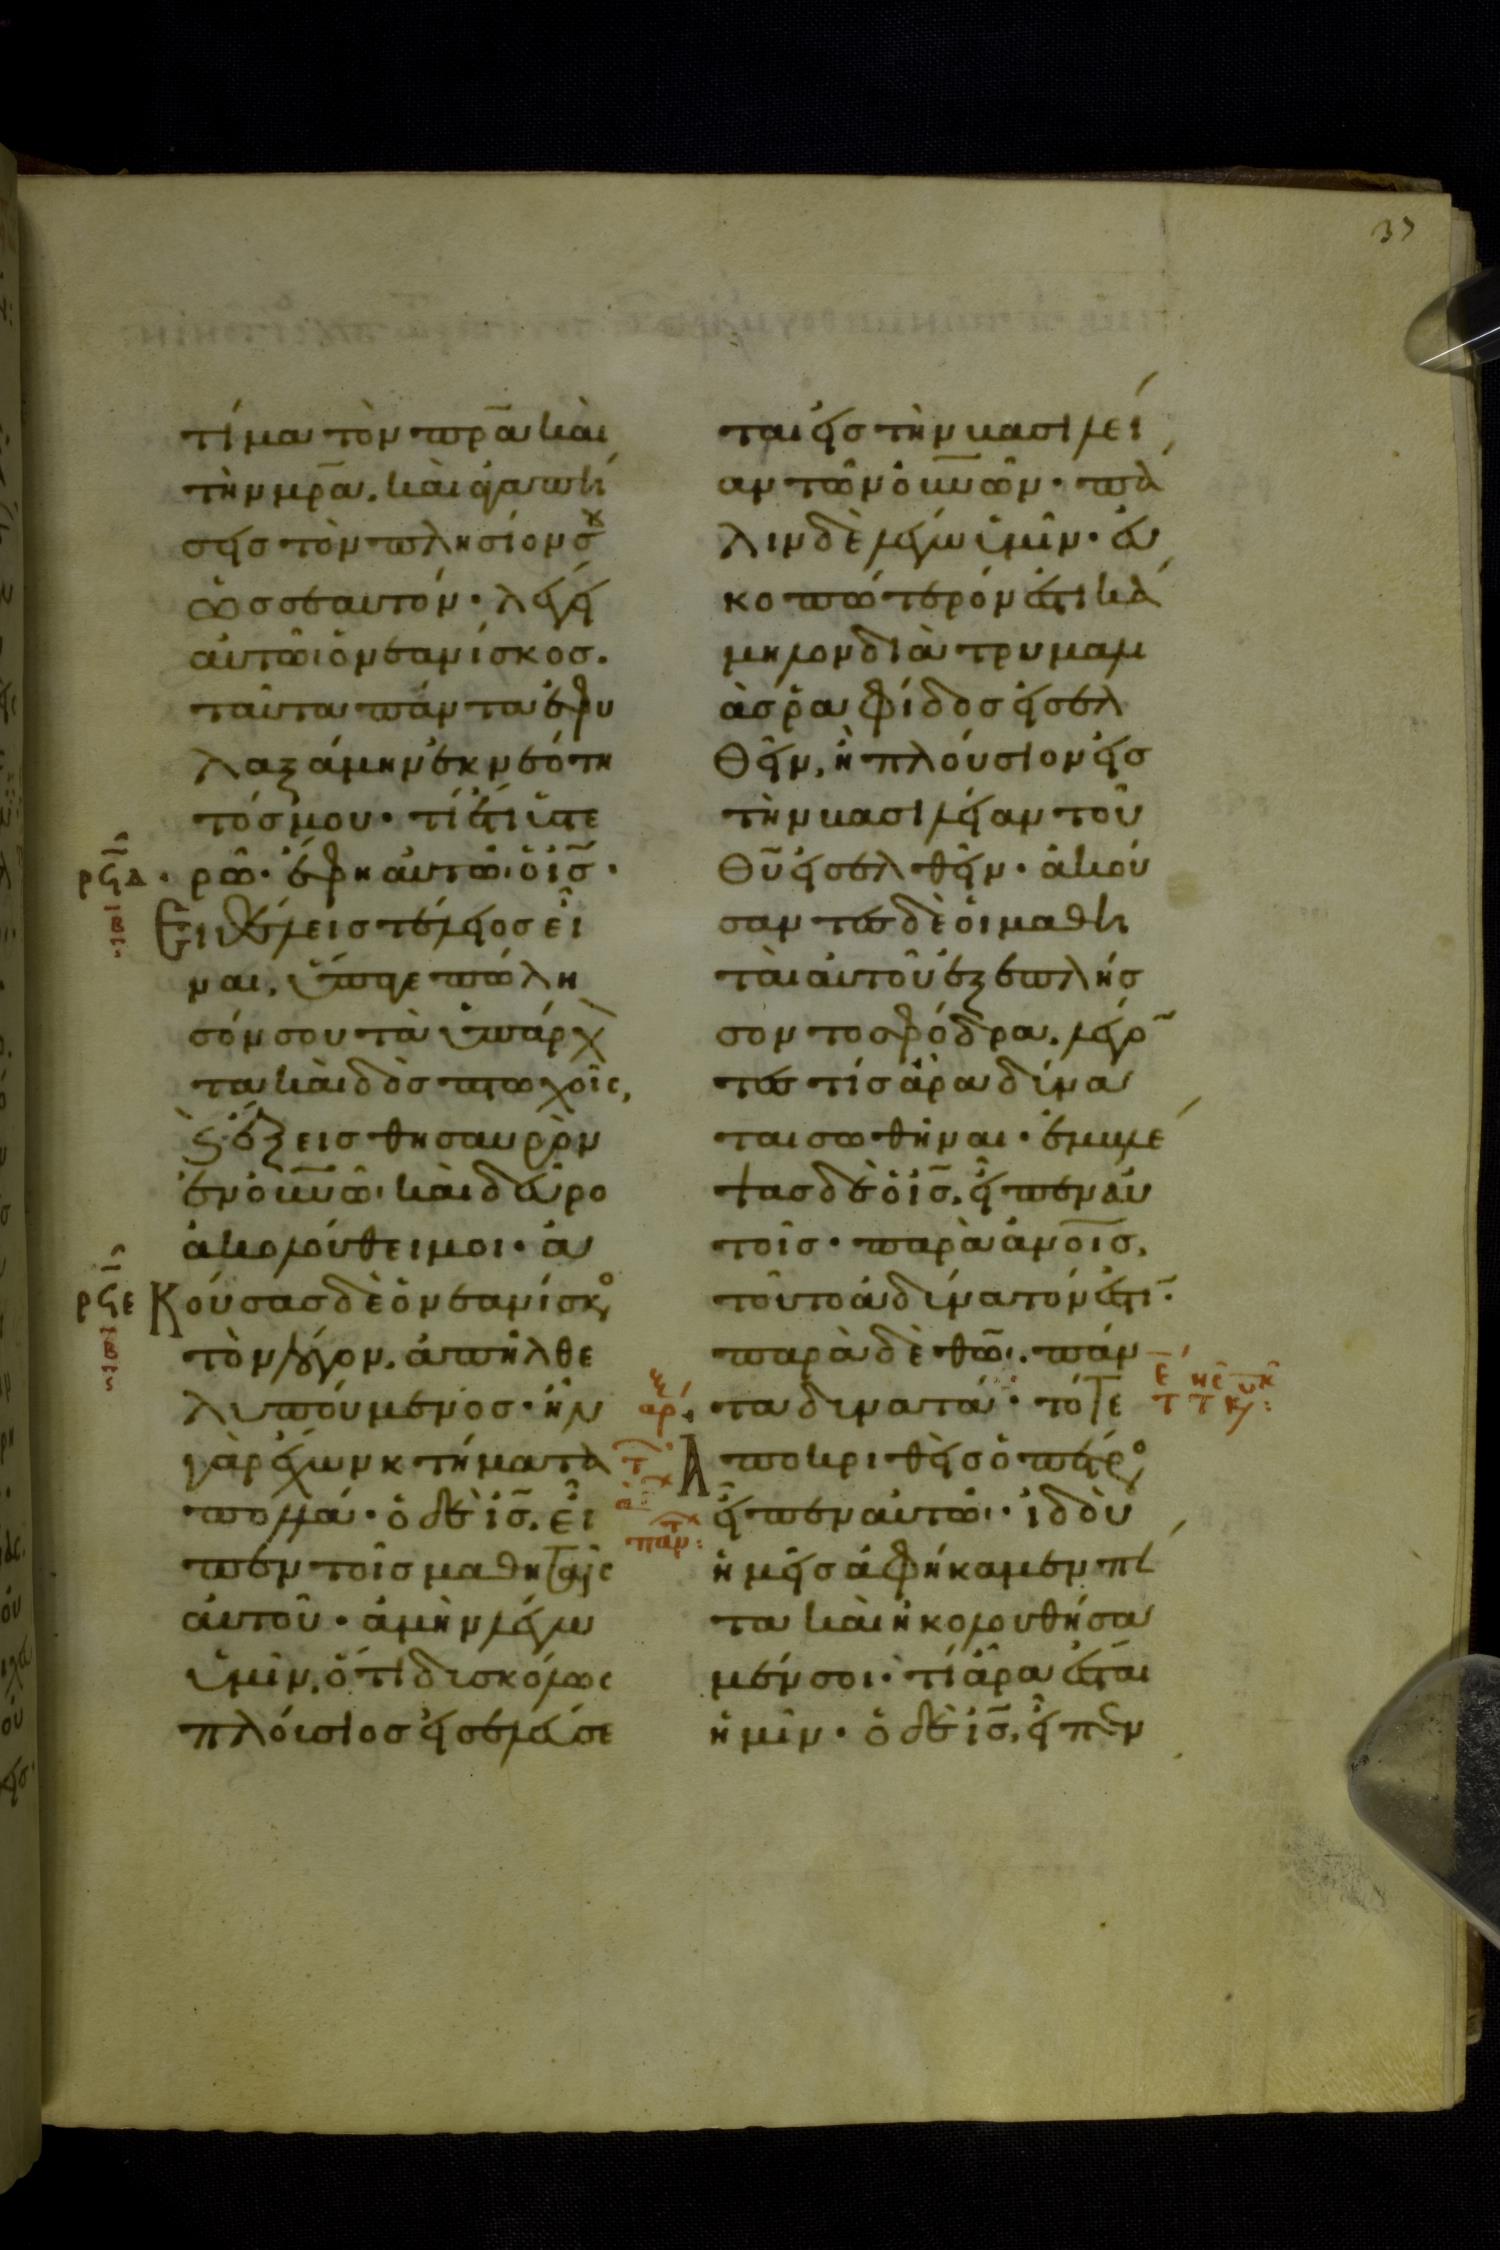 37
τίμα τὸν πρ̅α καὶ
τὴν μρ̅α. καὶ ἀγαπή
σεις τὸν πλησίον σ
ὡς σεαυτόν· λέγει
αὐτῶι ὁ νεανίσκος.
ταῦτα πάντα ἐφυ
λαξάμην ἐκ νεότη
τός μου· τί ἔτι ὑστε
ρῶ· ἔφη αὐτῶ· ὁ ισ̅·
ρϟδ
Ει θέλεις τέλειος εἶ
ναι, ὕπαγε πώλη
σόν σου τὰ ὑπάρχ
τα καὶ δὸς πτωχοῖς,
ϛ ἕξεις θησαυρὸν
ἐν ουνω̅· καὶ δεῦρο
ἀκολούθει μοι· ἀ
ρϟε
Κούσας δὲ ὁ νεανίσκο
τὸν λόγον. ἀπῆλθε
λυπούμενος· ἦν
γὰρ ἔχων κτήματα
πολλά· ὁ δὲ ισ̅. εἶ
πεν τοῖς μαθηταῖς
αὐτοῦ· ἀμὴν λέγω
ὑμῖν, ὅτι δυσκόλως
πλούσιος εἰσελεύσε
ται εἰς τὴν βασιλεί
αν τῶν ουνων̅· πά
λιν δὲ λέγω ὑμῖν· εὐ
κοπώτερόν ἐστι κά
μηλον διὰ τρυμαλι
ὰς ῥαφίδος εἰσελ
θεῖν, ἢ πλούσιον εἰς
τὴν βασιλείαν τοῦ
Θυ̅ εἰσελθεῖν· ἀκού
σαντες δὲ οἱ μαθη
ταὶ αὐτοῦ ἐξεπλήσ
σοντο σφόδρα. λέγο
τες τίς ἄρα δύνα
ται σωθῆναι· ἐμβλέ
ψας δὲ ὁ ισ̅. εἶπεν αὐ
τοῖς· παρὰ ἀνοισ̅.
τοῦτο ἀδύνατόν ἐστι·
παρὰ δὲ θω̅. πάν
τα δυνατά· τότε
Αποκριθεὶς ὁ πέτρο
εἶπεν αὐτῶ· ἰδοὺ
ἡμεῖς ἀφήκαμεν πά
τα καὶ ἠκολουθήσα
μέν σοι· τί ἄρα ἔσται
ἡμῖν· ὁ δὲ ισ̅. εἶπεν